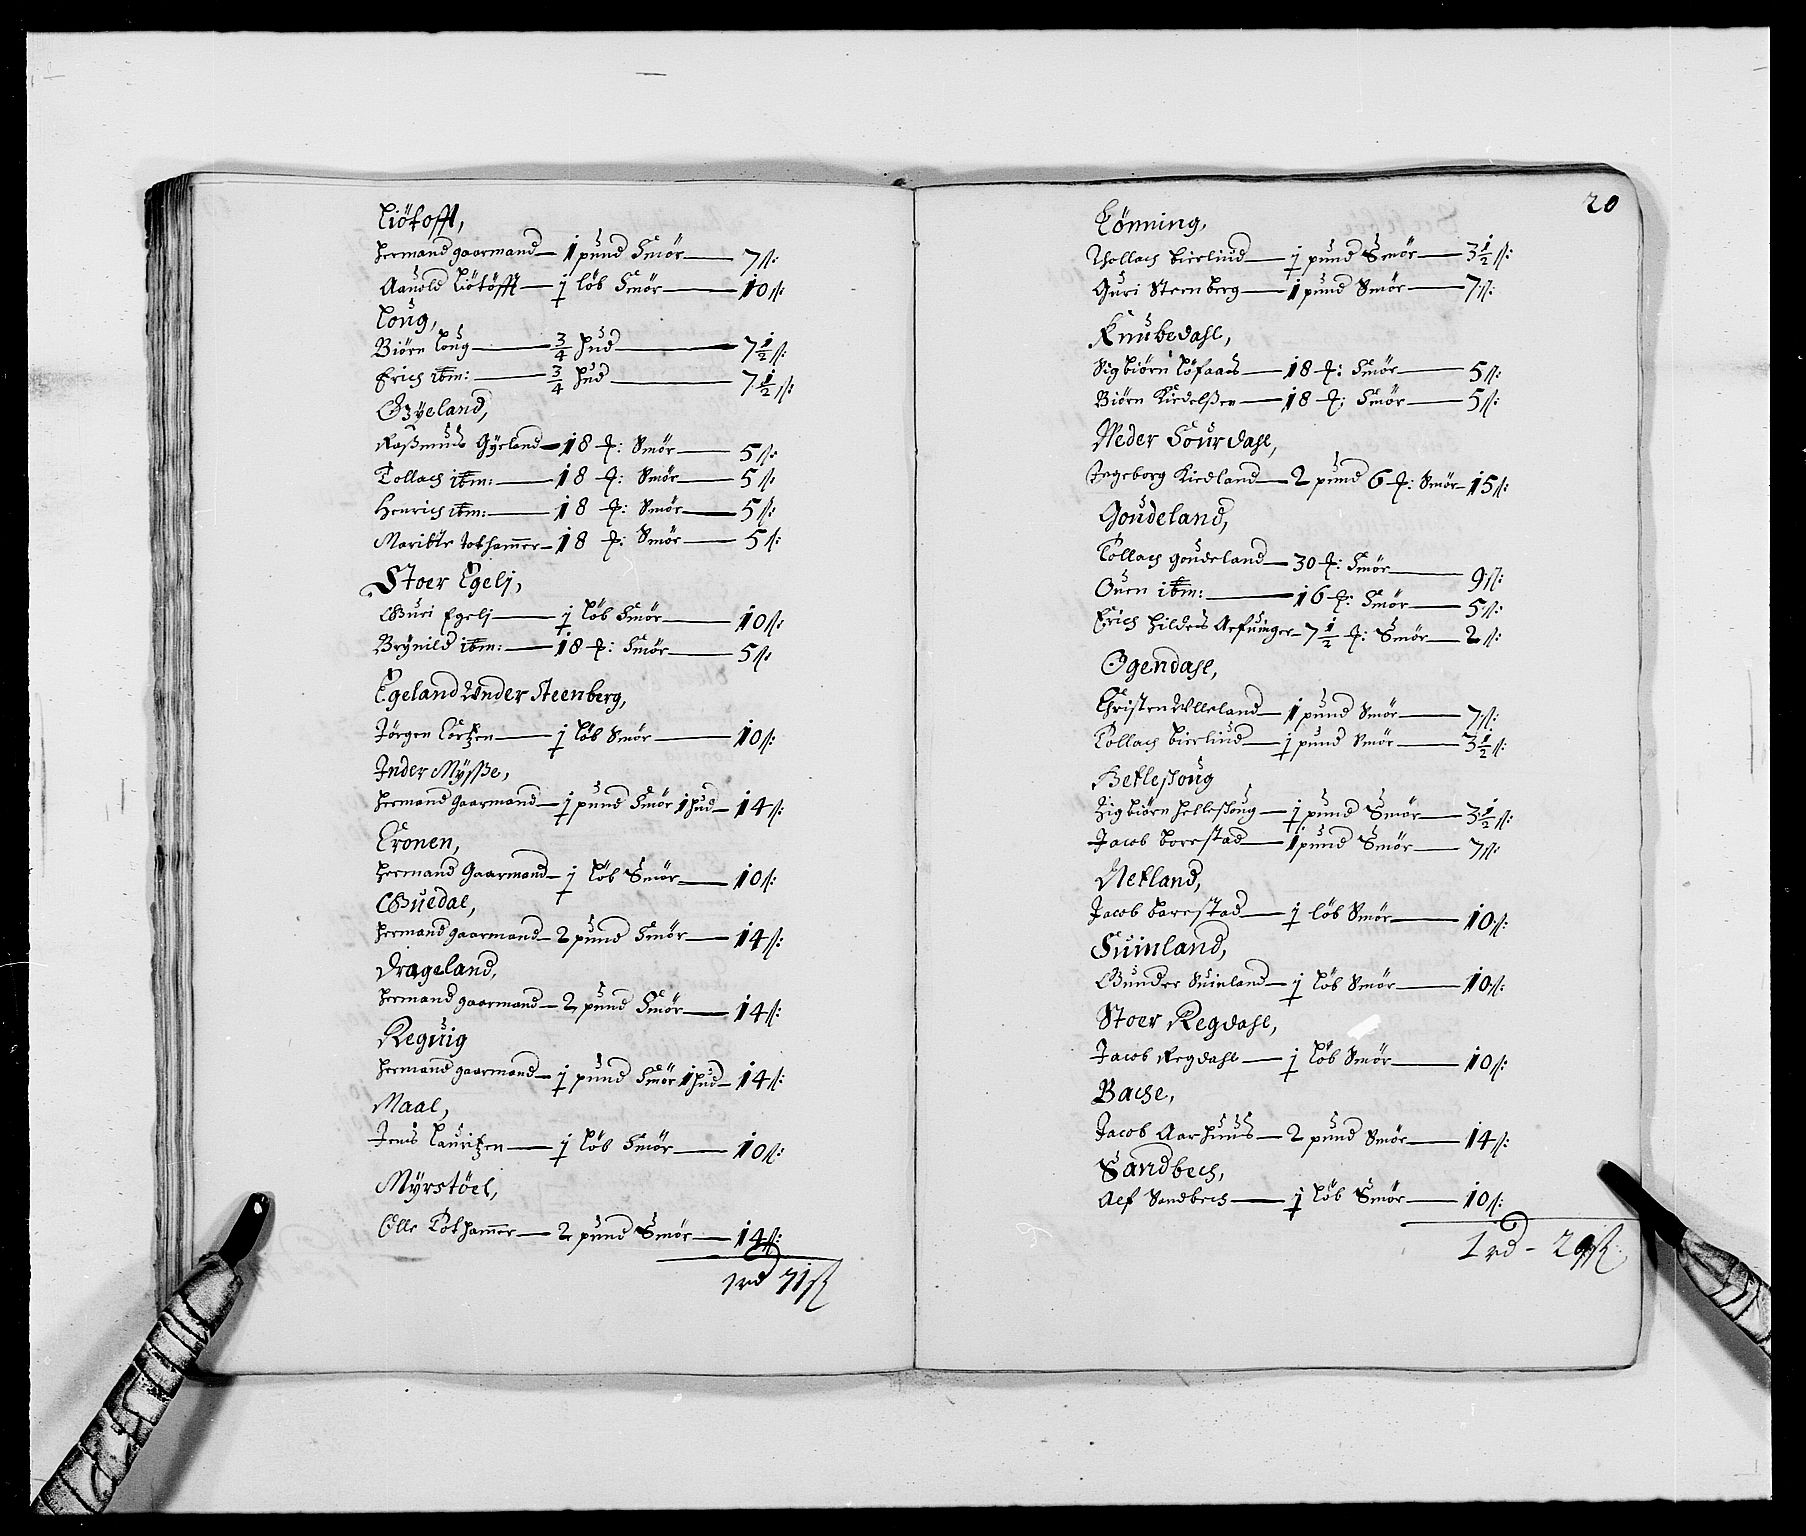 Liötofft,
Hermand gaarmand — 1 pund Smör — 7 ß:
Aanold Liötöfft — j löb Smör — 10 ß:
Loug,
Biörn Loug — 3/4 hud — 7 1/2 ß:
Erich ibm: — 3/4 hud — 7 1/2 ß:
Gyeland,
Rassmus Gyeland — 18 ₰: Smör — 5 ß:
Tollach ibm: — 18 ₰: Smör — 5 ß:
Henrich ibm: — 18 ₰: Smör — 5 ß:
Maritte Tothammer — 18 ₰: Smör — 5 ß:
Stoer Egelj,
Guri Egelj — j löb Smör — 10 ß:
Brynild ibm: — 18 ₰: Smör — 5 ß:
Egeland Vnder Steenberg,
Jörgen Cortzen — j löb Smör — 10 ß:
Inder Mysse,
Hermand Gaarmand — j pund Smör 1 hud — 14 ß:
Cronen,
Hermand Gaarmand — j löb Smör — 10 ß:
Guedal,
Hermand gaarmand — 2 pund Smör — 14 ß:
Drageland,
Hermand gaarmand — 2 pund Smör — 14 ß:
Reguig
Hermand gaarmand — j pund Smör 1 hud — 14 ß:
Maal,
Jens Lauritzen — j löb Smör — 10 ß:
Myrstöel,
Olle Tothammer — 2 pund Smör — 14 ß:
1 rd 71 ß
20
Lönning,
Thollach bierliud — j pund Smör — 3 1/2 ß:
Guri Steenberg — 1 pund Smör — 7 ß:
Knubedahl,
Sigbiörn Löfaas — 18 ₰: Smör — 5 ß:
Biörn Kiedelssen — 18 ₰: Smör — 5 ß:
Neder Sourdahl,
Ingeborg Kiedland — 2 pund 6 ₰: Smör — 15 ß:
Goudeland,
Tollach goudeland — 30 ₰: Smör — 9 ß:
Ouen ibm: — 16 ₰: Smör — 5 ß:
Erich Hildes Arfuinger — 7 1/2 ₰: Smör — 2 ß:
Ogendahl,
Christen Vlleland — 1 pund Smör — 7 ß:
Tollach bierliud — j pund Smör — 3 1/2 ß:
Hetlessoug
Zigbiörn Hetlessoug — j pund Smör — 3 1/2 ß:
Jacob borestad — 1 pund Smör — 7 ß:
Netland,
Jacob borestad — j löb Smör — 10 ß:
Suinland,
Gunder Suinland — j löb Smör — 10 ß:
Stoer Regdahl,
Jacob Regdahl — j löb Smör — 10 ß:
Bache,
Jacob Aarhuus — 2 pund Smör — 14 ß:
Sandbech,
Alf Sandbech — j löb Smör — 10 ß:
1 rd - 29 ß